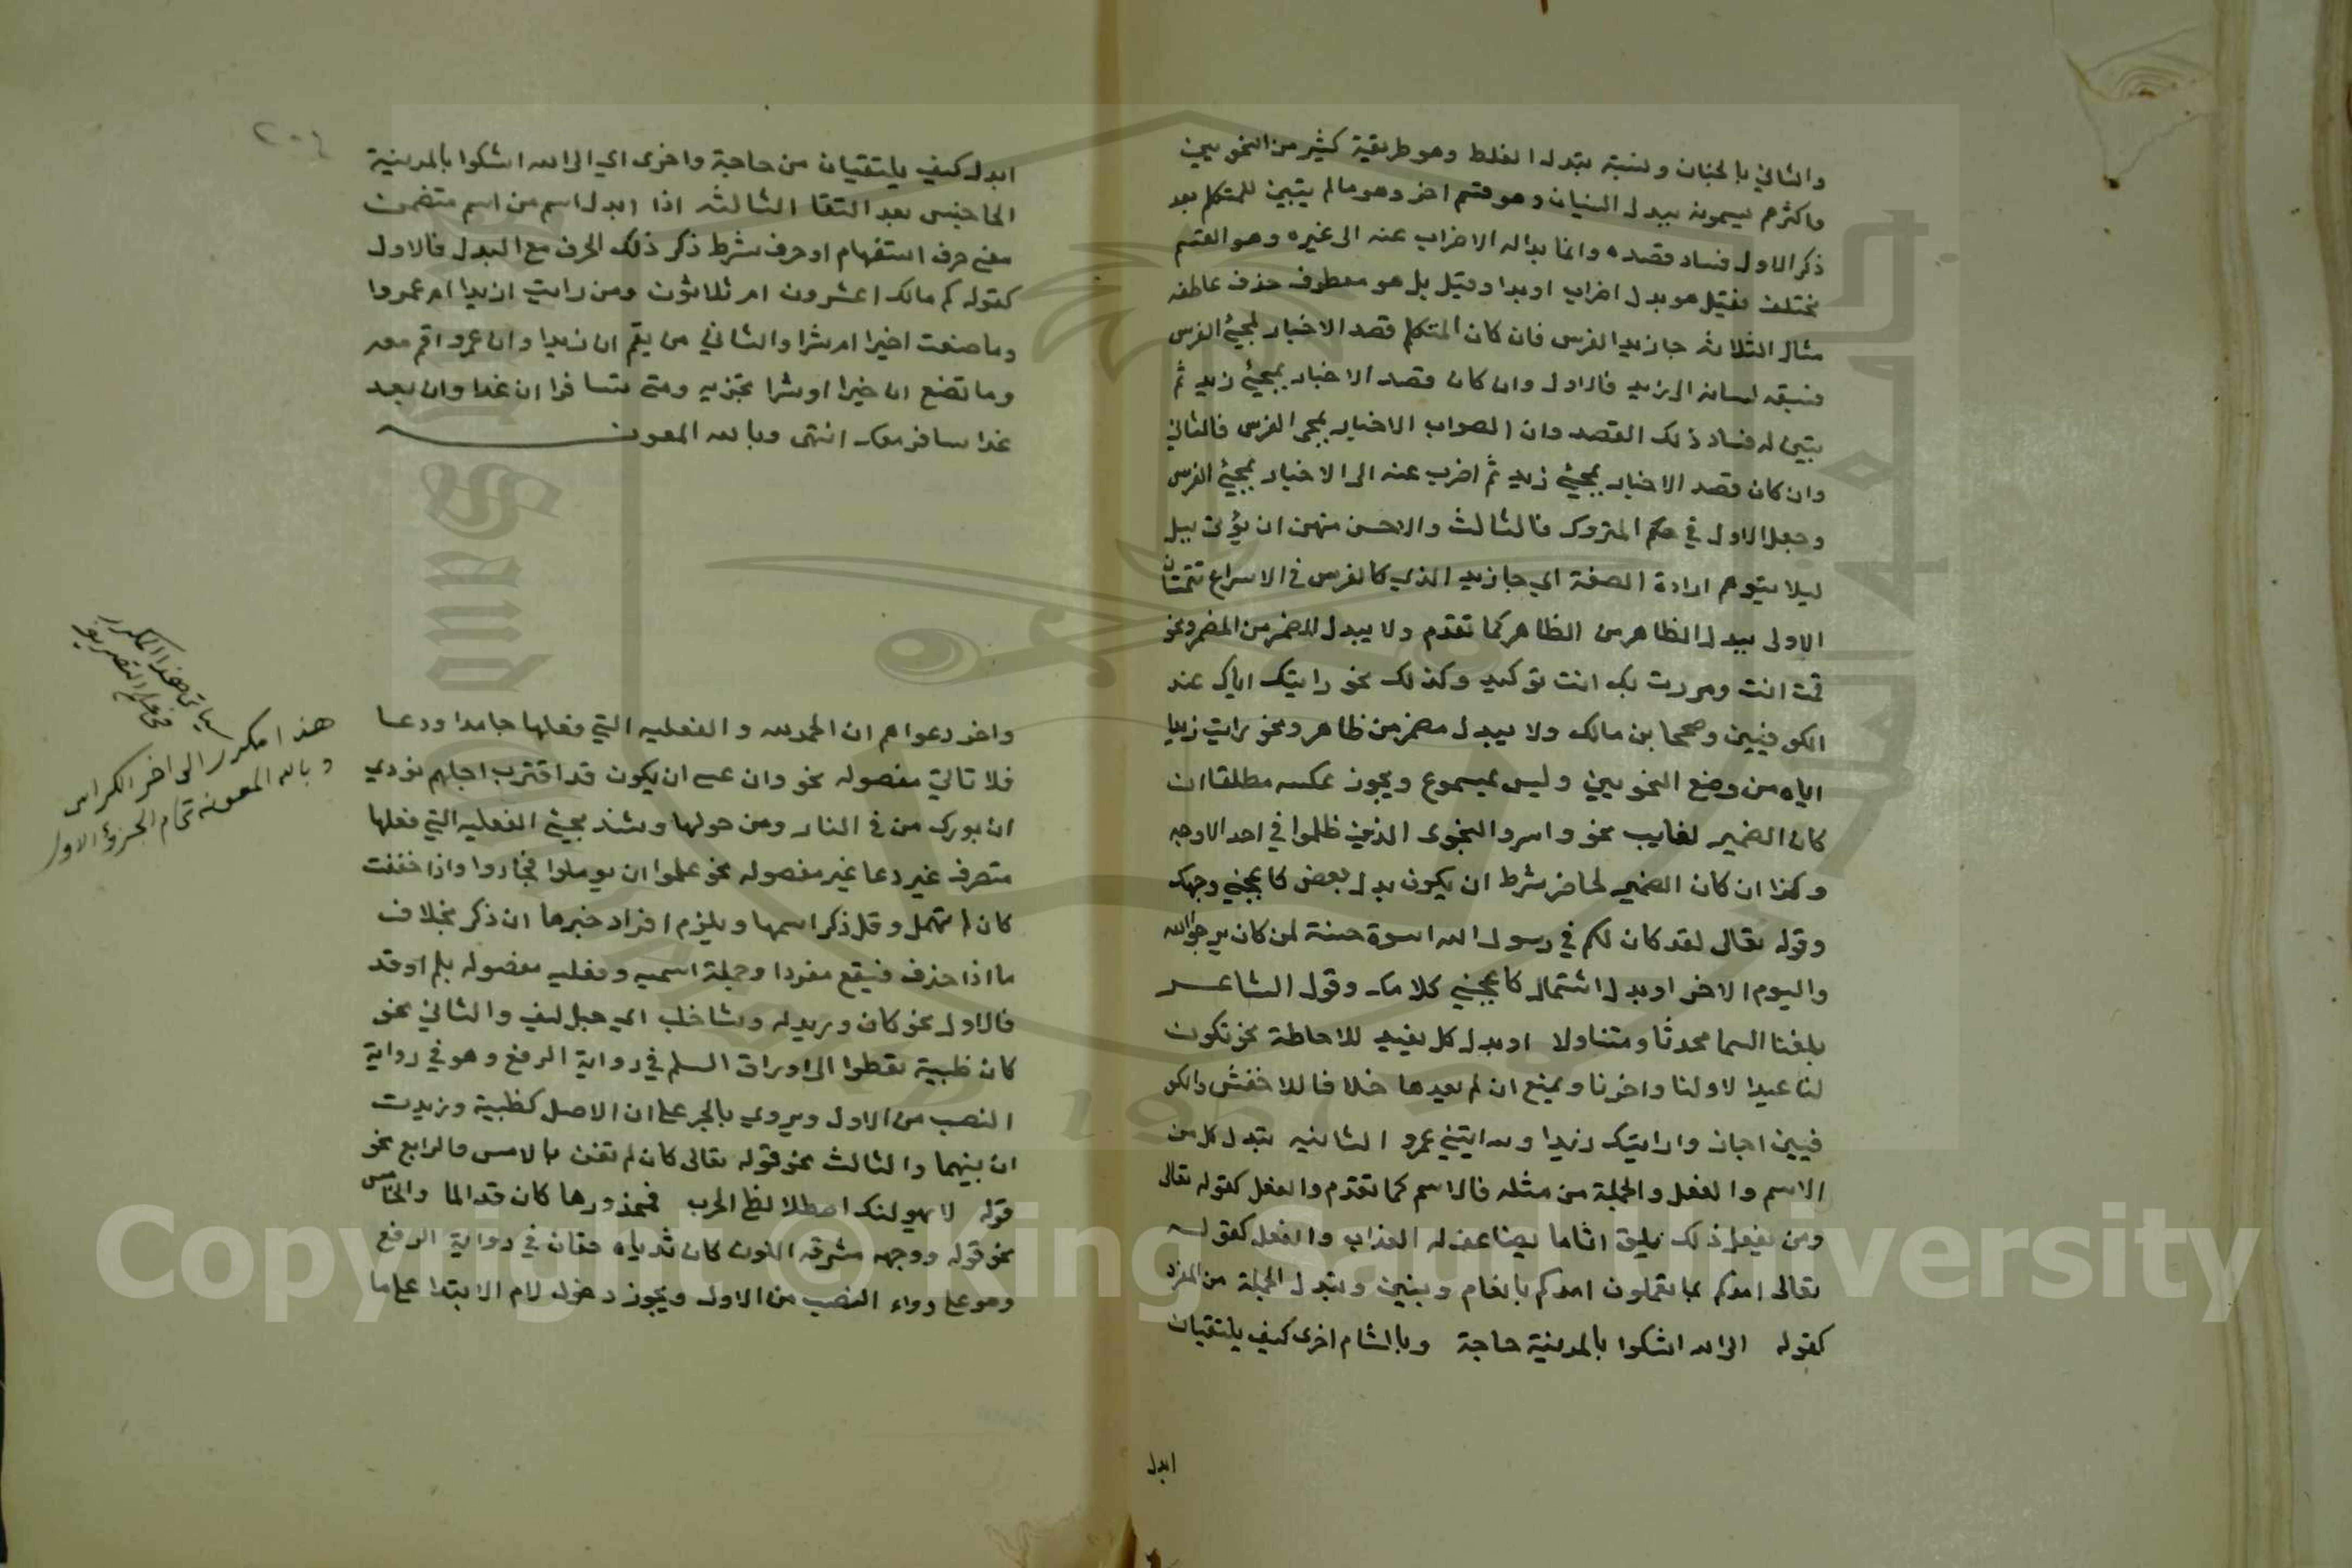 والثاني بالجنان ونسبته ببدل الغلط وهو طريقية كثير من النحويين
واكثرهم يسمونه ببدل النسيان وهو قسم اخر وهو مالم يتبين للمتكلم بعد
ذكر الاول فساد قصده وانما بدا له الاضراب عنه الى غيره وهو القسم
مختلف فقيل هو بدل اضراب او بدا وقيل بل هو معطوف حذف عاطفه
مثال الثلاثه جا زيد الفرس فان كان المتكلم قصد الاخبار بمجيئ الفرس
فسبقه لسانه الى زيد فالاول وان كان قصد الاخبار بمجيئ زيد ثم
تبين له فساد ذلك القصد وان الصواب الاخبار بمجى الفرس فالثاني
وان كان قصد الاخبار بمجيئ زيد ثم اضرب عنه الى الاخبار بمجيئ الفرس
وجعل الاول في حكم المتروك فالثالث والاحسن منهن ان يؤتى ببل
ليلا يتوهم ارادة الصفة اي جا زيد الذي كالفرس في الاسراع تتمتان
الاولى يبدل الظاهر من الظاهر كما تقدم ولا يبدل المضمر من المضمر ونحو
قمت انت ومررت بك انت توكيد وكذلك نحو رايتك اياك عند
الكوفيين وصححا بن مالك ولا يبدل مضمر من ظاهر ونحو رايت زيدا
اياه من وضع النحويين وليس بمسموع ويجوز عكسه مطلقا ان
كان الضمير لغايب نحو واسروا النجوى الذين ظلموا في احد الاوجه
وكذا ان كان الضمير لحاضر بشرط ان يكون بدل بعض كاعجبني وجهك
وقوله تعالى لقد كان لكم في رسول الله اسوة حسنة لمن كان يرجوالله
واليوم الاخر او بدل اشتمال كاعجبني كلامك وقول الشاعر
بلغنا السما مجدنا وسناولا او بدل كل يفيد للاحاطة نحو تكون
لنا عيدا لاولنا واخرنا ويمنع ان لم يفدها خلافا للاخفش والكو
فيين اجاز وا رايتك زيدا ورايتني عمرو الثانيه يبدل كل من
الاسم والفعل والجملة من مثله فالاسم كما تقدم والفعل كقوله تعالى
ومن يفعل ذلك يلق اثاما يضاعف له العذاب والفعل كقوله
تعالى امدكم بما تعملون امدكم بانعام وبنين وتبدل الجملة من المفرد
كقوله الى الله اشكوا بالمدينة حاجة وبالشام اخرى كيف يلتقيان
ابدل
٢٠٤
ابدل كيف يلتقيان من حاجة واخرى اي الى الله اشكوا بالمدينة
الحاجتين بعد التقا الثالثه اذا ابدل اسم من اسم متضمن
معنى حرف استفهام او حرف شرط ذكر ذلك الحرف مع البدل فالاول
كقوله كم مالك اعشرون ام ثلاثون ومن رايت ازيدا ام عمروا
وما صنعت اخيرا ام شرا والثاني من يقم ان زيدا وان عمرو اقم معه
وما تصنع ان خيرا او شرا تجز به ومتى تسافرا ان غدا وان بعد
غدا سافر معك انتهى وبالله المعونه
واخر دعواهم ان الحمد لله والفعليه التي فعلها جامدا ودعا
فلا تاتي مفصوله نحو وان عسى ان يكون قد اقترب اجلهم نودي
ان بورك من في النار ومن حولها ويشذ مجيئ الفعليه التي فعلها
متصرف غير دعا غير مفصوله نحو علموا ان يوملوا فجادوا واذا خففت
كان لم تهمل وقل ذكر اسمها ويلزم افراد خبرها ان ذكر بخلاف
ما اذا حذف فيقع مفردا وجملة اسميه وفعليه مفصوله بلم اوقد
فالاول نحو كان وريديه رشا خلب اي حبل ليف والثاني نحو
كان ظبية تعطوا الى اوراق السلم في رواية الرفع وهو في رواية
النصب من الاول ويروي بالجر على ان الاصل كظبية وزيدت
ان بينهما والثالث نحو قوله تعالى كان لم تغن بالامس والرابع نحو
قوله لا يهولنك اصطلا لظا الحرب فمحذورها كان قد الما والخامس
نحو قوله ووجهه مشرقه اللون كان ثدياه حقان في رواية الرفع
وهو على رواء النصب من الاول ويجوز دخول لام الابتدا على ما
سياتي هذا المكرر
في علم التصريف
هذا مكرر الى اخر الكراس
وبالله المعونه تمام الجزؤ الاول
Copyright © King Saud University